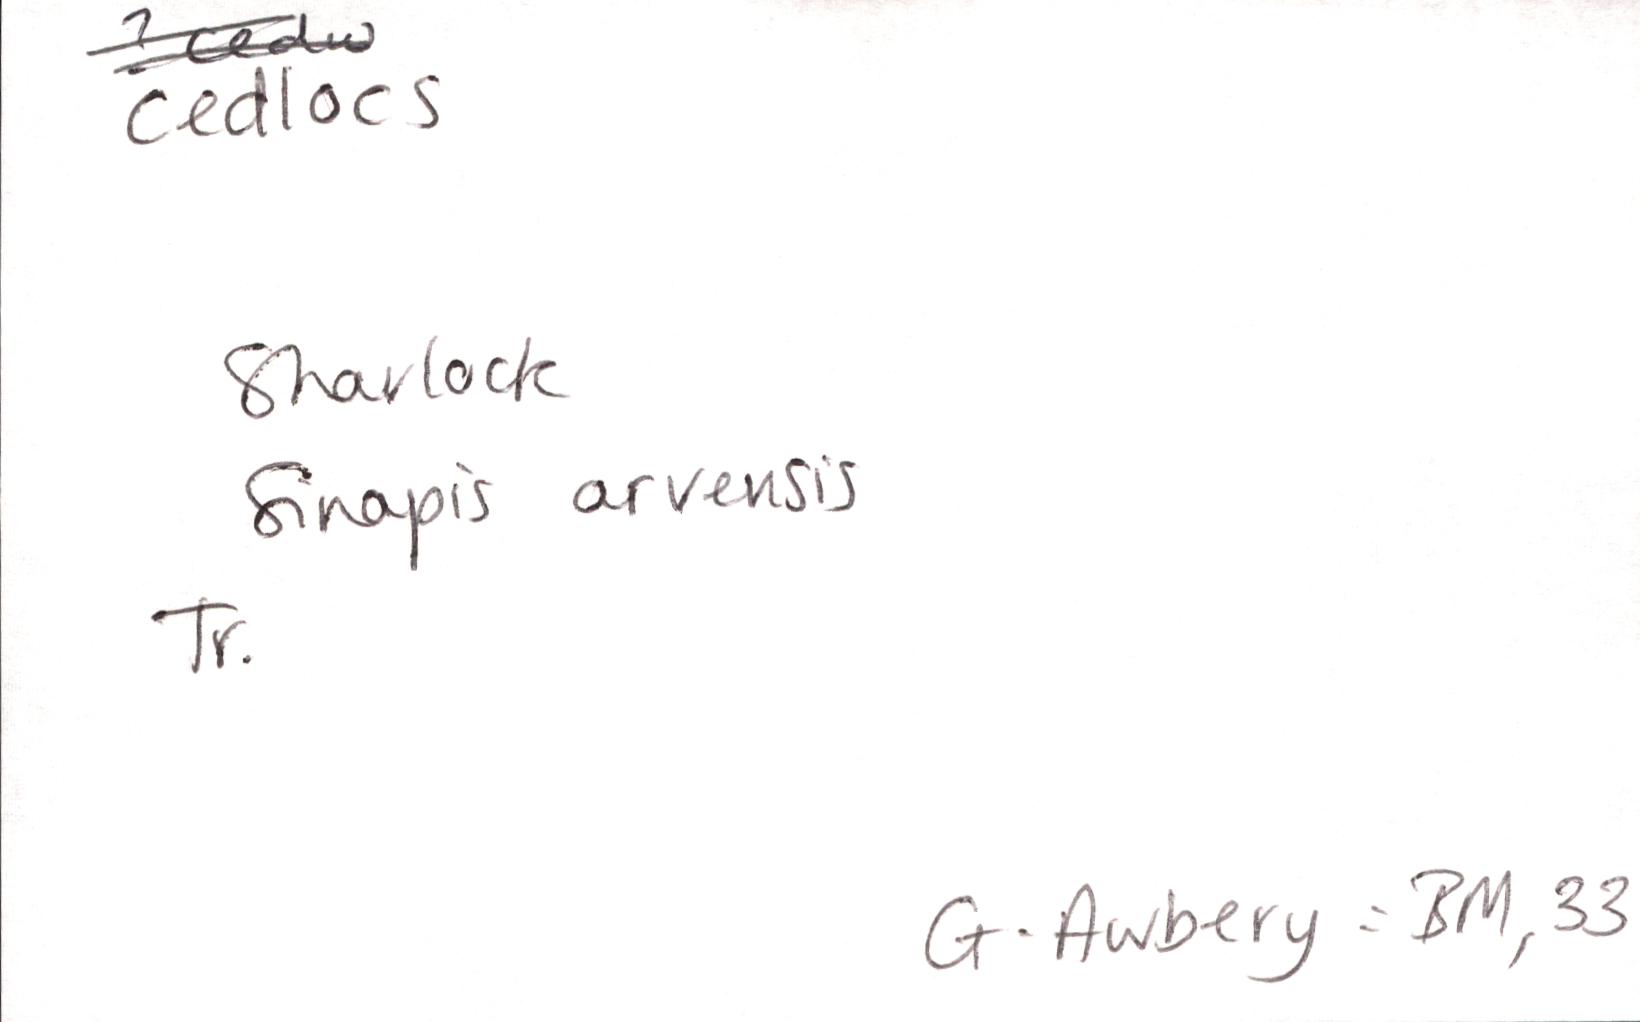 cedlocs
Sharlock
Sinapis arvensis
Tr.
G. Awbery = BM, 33